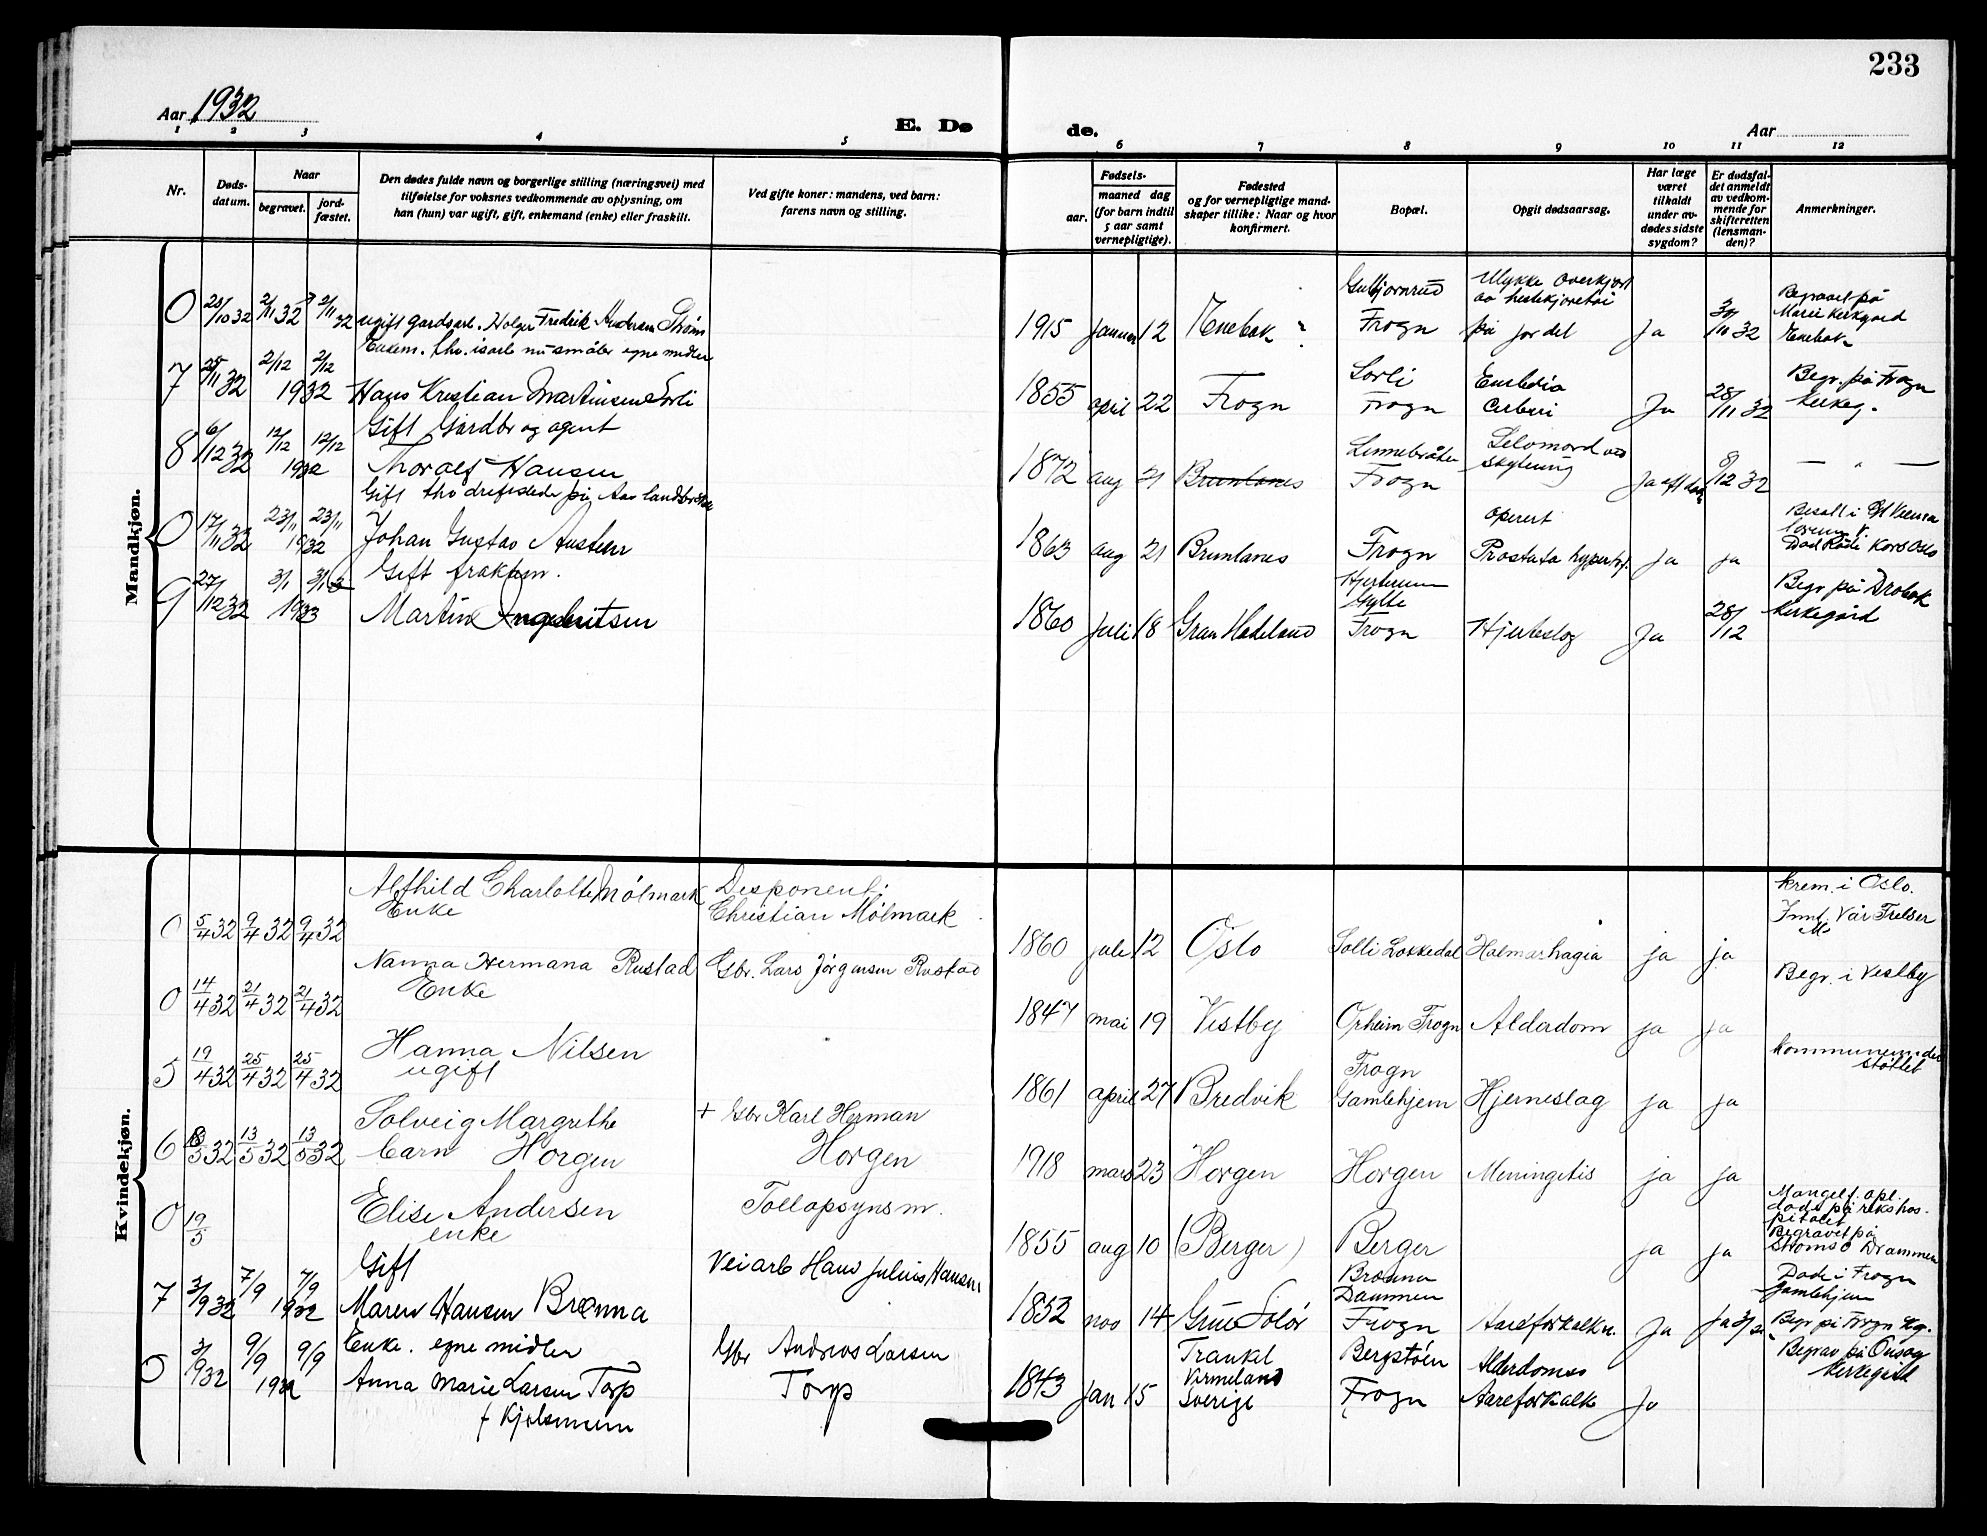 233
Aar 1932
E. Dø de.
Aar
1 2 3 4 5 6 7 8 9 10 11 12
Nr.
Døds-
datum.
Naar
begravet.
jord-
fæstet.
Den dødes fulde navn og borgerlige stilling (næringsvei) med
tilføielse for voksnes vedkommende av oplysning, om
han (hun) var ugift, gift, enkemand (enke) eller fraskilt.
Ved gifte koner: mandens, ved barn:
farens navn og stilling.
Fødsels-
aar.
maaned dag
(for barn indtil
5 aar samt
vernepligtige).
Fødested
og for vernepligtige mand-
skaper tillike: Naar og hvor
konfirmert.
Bopæl.
Opgit dødsaarsag.
Har læge
været
tilkaldt
under av-
dødes sidste
sygdom?
Er dødsfal-
det anmeldt
av vedkom-
mende for
skifteretten
(lensman-
den)?
Anmerkninger.
Mandkjøn.
0 28/10 32 2/11 32 2/11 32 ugift gardsarb. Holger Fredrik Andersen
1915 januar 12 Enebak ? Frogn
Ulykke overkjørt
av hestekjøretøi
på jordet
Ja 30/10 32
Begravet på
Marie kirkegård
Enebak
7 25/11 32 2/12 2/12 1932
egne midler
Hans Kristian Martinsen Sorli
1855 april 22 Frogn
Sorli
Frogn
Embolia
cerberi
Ja 28/11 32
Begr. på Frogn
kirkeg.
8 6/12 32 12/12 12/12 1932
Gift Gårdbr og agent
Thoralf Hansen
1872 aug 21 Brunlanes
Linnebråten
Frogn
Selvmord ved
skytning
Ja 8/12 32
— " —
0 17/11 32 23/11 23/11 1932
Gift
Johan Gustav Austein
1863 aug 21 Brunlanes Frogn
operert
Prostata hypertrf.
Ja ja
Død Røde Kors Oslo
9 27/12 32 3/1 3/1 1933
Gift fraktem.
Martin Ingebritsen
1860 Juli 18 Gran Hadeland
Hylte
Frogn
Hjerteslag Ja 28/12
Begr på Drøbak
kirkegård
Kvindekjøn.
0 5/4 32 9/4 32 9/4 32
Alfhild Charlotte Mølmark
Enke
Disponent
Christian Mølmark
1860 jule 12 Oslo Solli Lokkedal ja ja
krem. i Oslo.
Vår Frelser
0 14/4 32 21/4 32 21/4 32
Nanna Hermana Rustad
Enke
Gbr. Lars Jørgensen Rustad
1847 mai 19 Vestby Orheim Frogn Alderdom ja ja
Begr. i Vestby
5 19/4 32 25/4 32 25/4 32
Hanna Nilsen
ugift
1861 april 27 Bredvik
Frogn
Gamlehjem
Hjerneslag ja ja
6 8/5 32 13/5 32 13/5 32
Solveig Margrethe
barn Horgen
+ Gbr Karl Herman
Horgen
1918 mars 23 Horgen Horgen Meningitis ja ja
0 19/5
Elise Andersen
enke
Tollopsynsm.
1855 aug 10 (Berger) Berger ja ja
Mangelf. opl.
døde på rikshos-
pitalet
Begravet på
Strømsø Drammen
7 3/9 32 7/9 7/9 1932
Gift
Maren Hansen Brønna
Veiarb Hans Julius Hansen
1852 nov 14 Grue Solør
Brønna
Dammen
Frogn
Aareforkalkn. Ja Ja
Døde i Frogn
Gamlehjem
Begr på Frogn kg.
0 3/9 32 9/9 9/9 1932
Enke. egne midler
Anna Marie Larsen Torp
Gbr Andreas Larsen
Torp
1843 Jan 15
Virmeland
Sverige
Bergstøen
Frogn
Aareforkalk
Ja
Begrav på Onsøy
kirkegård